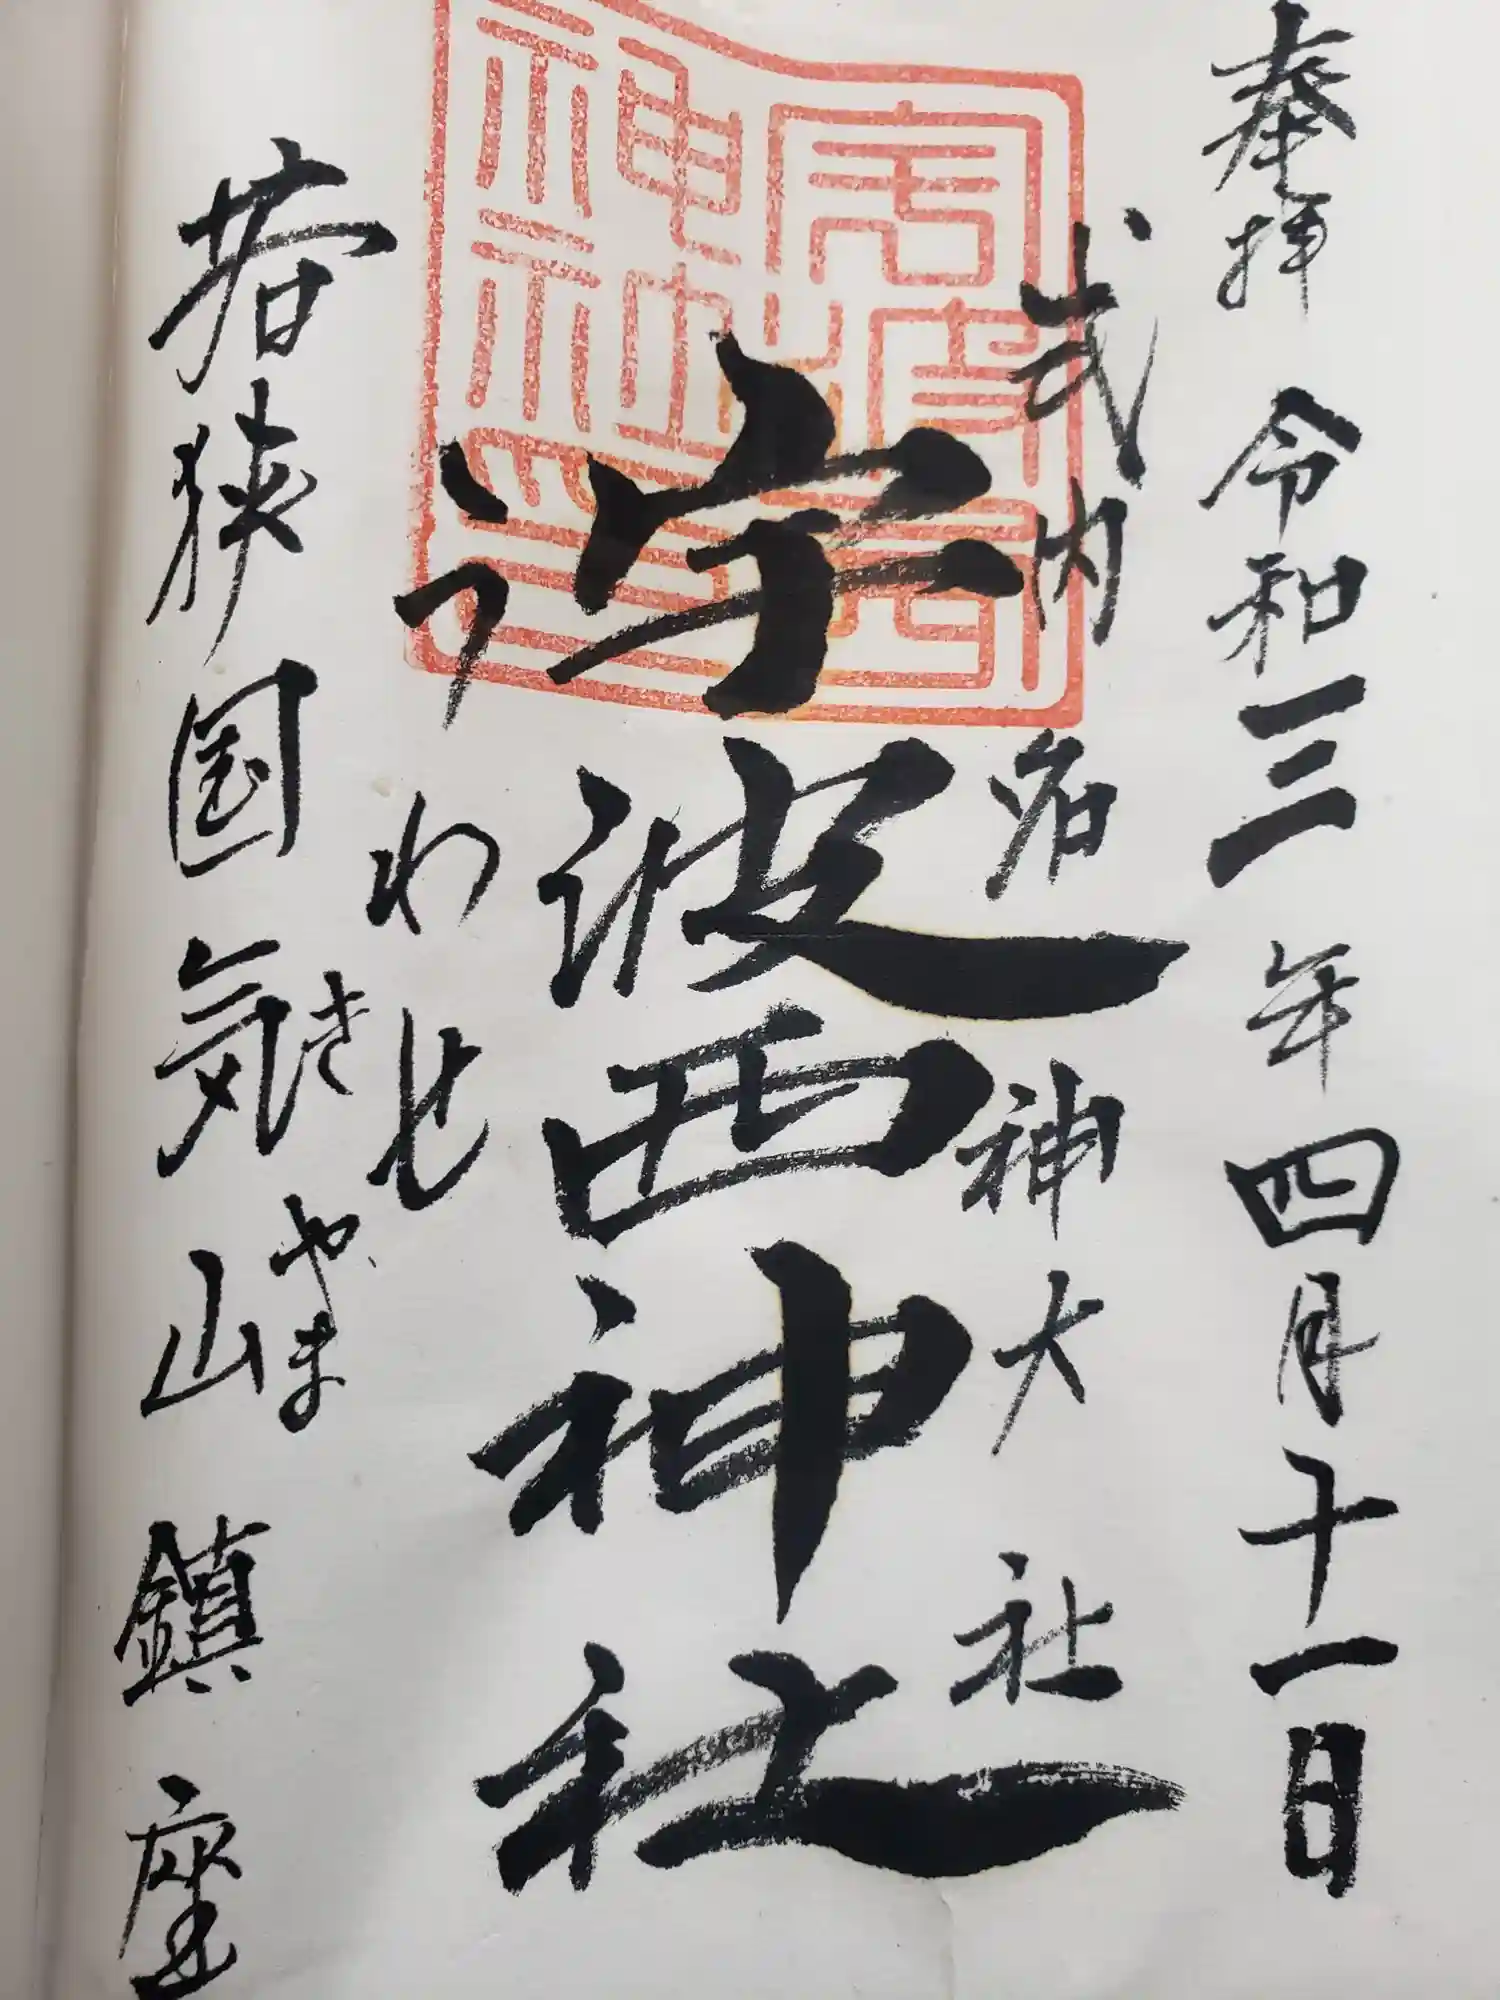 奉拝 令和三年四月十一日
式内 名神大社
宇波西神社
うわせ
きやま
若狭国気山鎮座